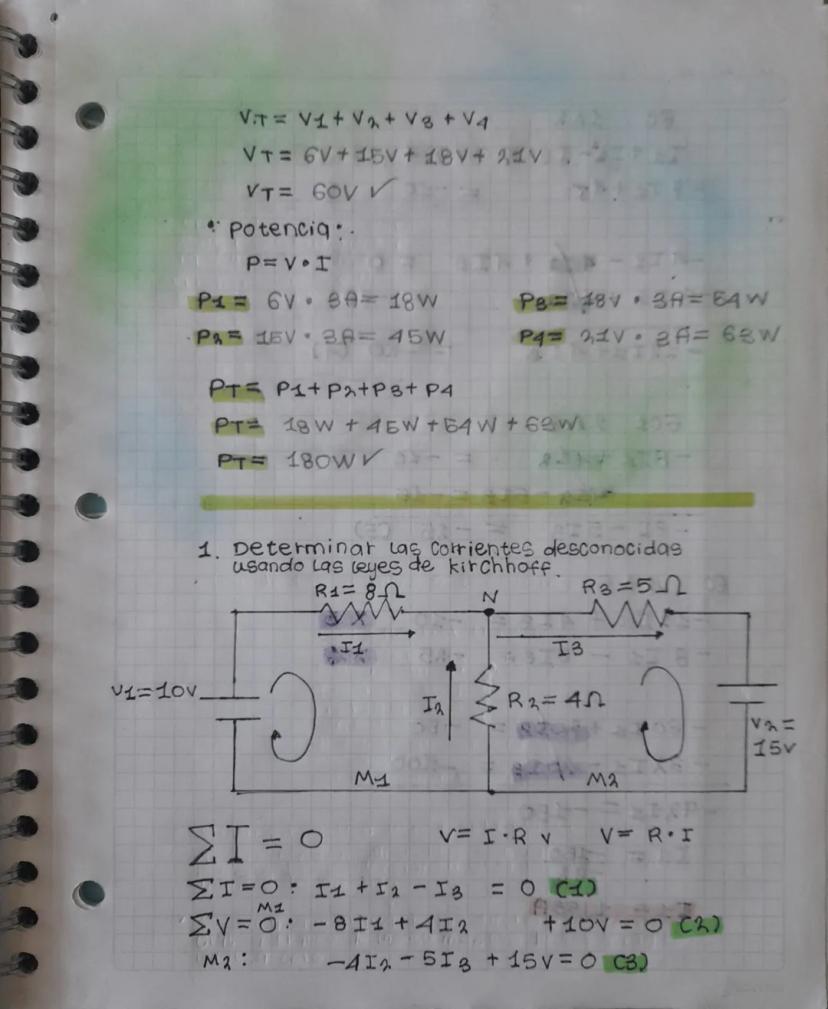 V.T = V1 + V2 + V3 + V4
VT = 6V + 15V + 18V + 21V
VT = 60V ✓
Potencia:.
P = V • I
P1 = 6V • 3A = 18W
P3 = 18V • 3A = 54W
P2 = 15V • 3A = 45W
P4 = 21V • 3A = 63W
PT = P1 + P2 + P3 + P4
PT = 18W + 45W + 54W + 63W
PT = 180W ✓
1. Determinar las corrientes desconocidas
usando las leyes de kirchhoff.
R1 = 8Ω
N
R3 = 5Ω
I1
I3
V1 = 10V
I2
R2 = 4Ω
V2 =
15V
M1
M2
ΣI = 0 V = I • R V = R • I
ΣI = 0: I1 + I2 - I3 = 0 (1)
M1
ΣV = 0: -8I1 + 4I2 + 10V = 0 (2)
M2: -4I2 - 5I3 + 15V = 0 (3)